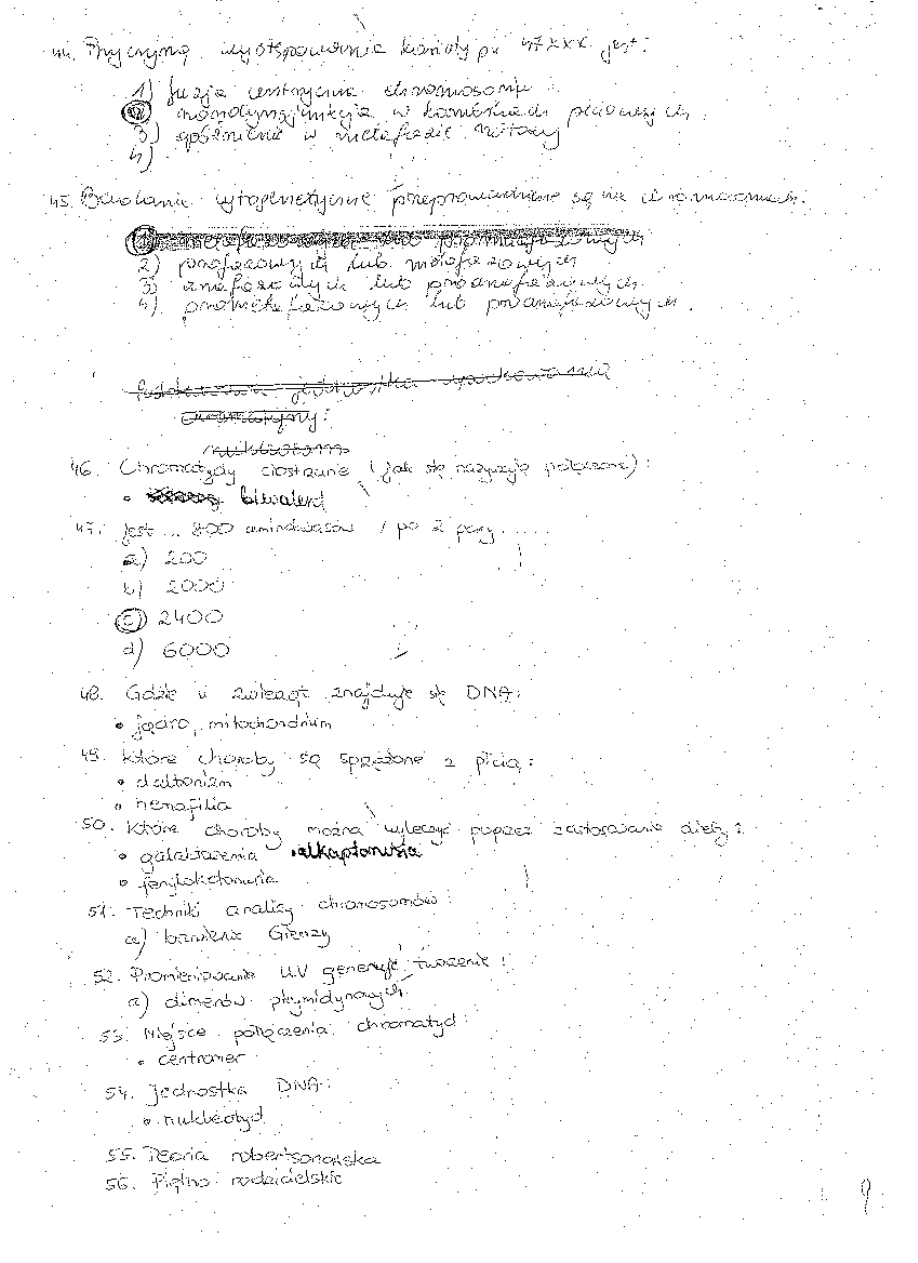 44. Przyczyną występowania kariotypu 47XXX jest:
1) fuzja centryczna chromosomów
2) nondysjunkcja w komórkach płciowych
3) opóźnienie w metafazie mitozy
4)
45. Badania cytogenetyczne przeprowadzane są na chromosomach:
1) metafazowych lub prometafazowych
2) profazowych lub metafazowych
3) anafazowych lub proanafazowych
4) prometafazowych lub proanafazowych
Podstawowa jednostka upakowania
chromatyny:
nukleosom
46. Chromatydy ciostrzane (jak się nazywają połączone):
• biwalent
47. Jest ... 800 aminokwasów / po 2 pary .....
a) 200
b) 2000
c) 2400
d) 6000
48. Gdzie u zwierząt znajduje się DNA:
• jądro, mitochondrium
49. Które choroby są sprzężone z płcią:
• daltonizm
• hemofilia
50. Które choroby można wyleczyć poprzez zastosowanie diety:
• galaktozemia • alkaptonuria
• fenyloketonuria
51. Techniki analizy chromosomów:
a) barwienie Giemzy
52. Promieniowanie UV generuje tworzenie:
a) dimerów pirymidynowych
53. Miejsce połączenia chromatyd:
• centromer
54. Jednostka DNA:
• nukleotyd
55. Teoria robertsonańska
56. Piętno rodzicielskie
9